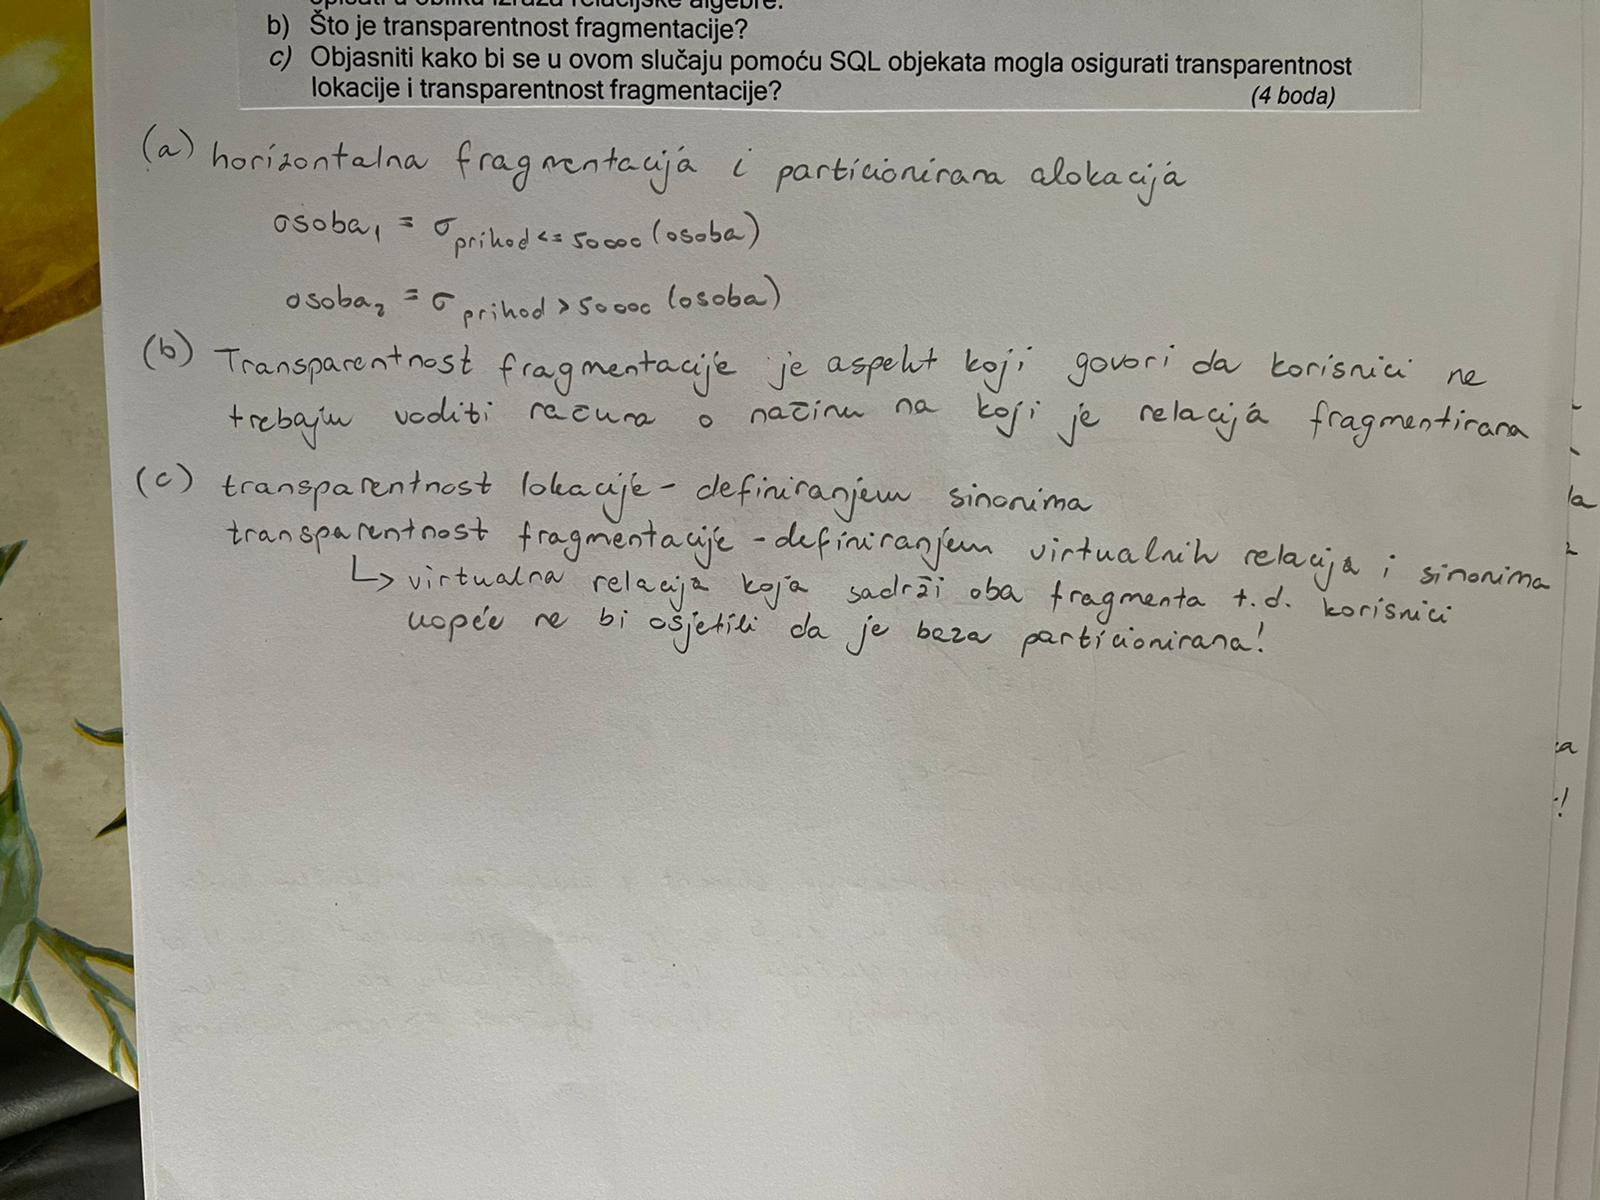 opisati u obliku izraza relacijske algebre.
b) Što je transparentnost fragmentacije?
c) Objasniti kako bi se u ovom slučaju pomoću SQL objekata mogla osigurati transparentnost
lokacije i transparentnost fragmentacije? (4 boda)
(a) horizontalna fragmentacija i particionirana alokacija
osoba₁ = σ prihod <= 50000 (osoba)
osoba₂ = σ prihod > 50000 (osoba)
(b) Transparentnost fragmentacije je aspekt koji govori da korisnici ne
trebaju voditi računa o načinu na koji je relacija fragmentirana
(c) transparentnost lokacije - definiranjem sinonima
transparentnost fragmentacije - definiranjem virtualnih relacija i sinonima
↳ virtualna relacija koja sadrži oba fragmenta t.d. korisnici
uopće ne bi osjetili da je baza particionirana!
la
2
za
!